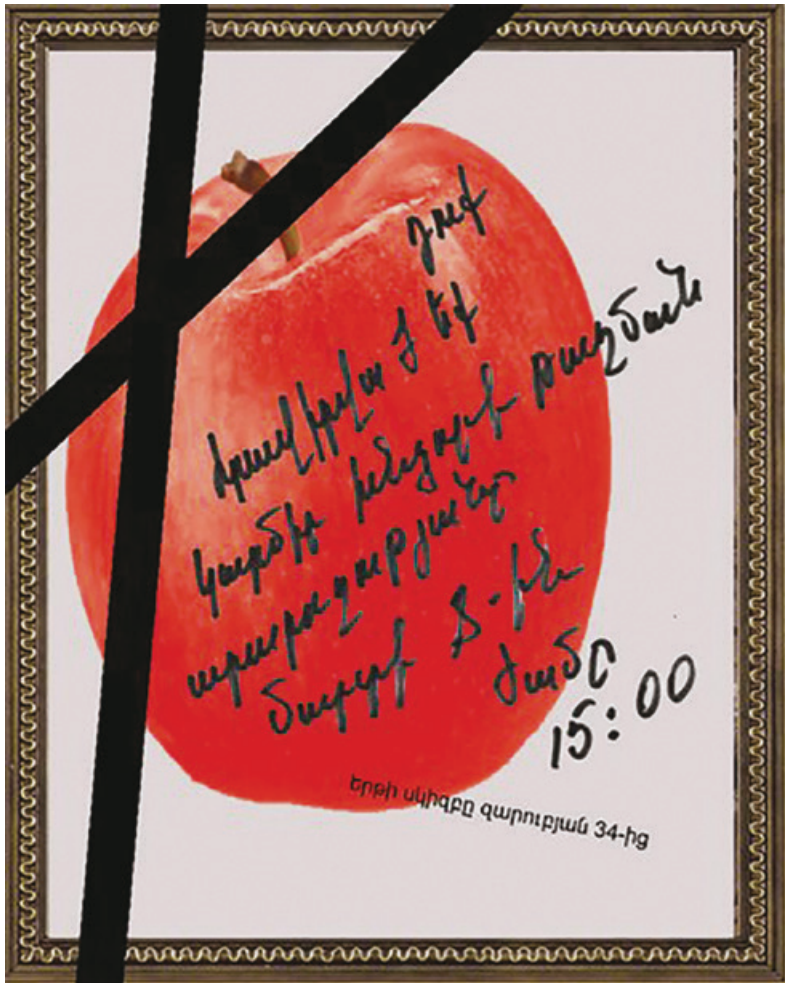 Դուք
հրավիրված եք
կարմիր խնձորի թաղման
արարողությանը
մարտի 8-ին
ժամը
15:00
երթի սկիզբը զարուբյան 34-ից